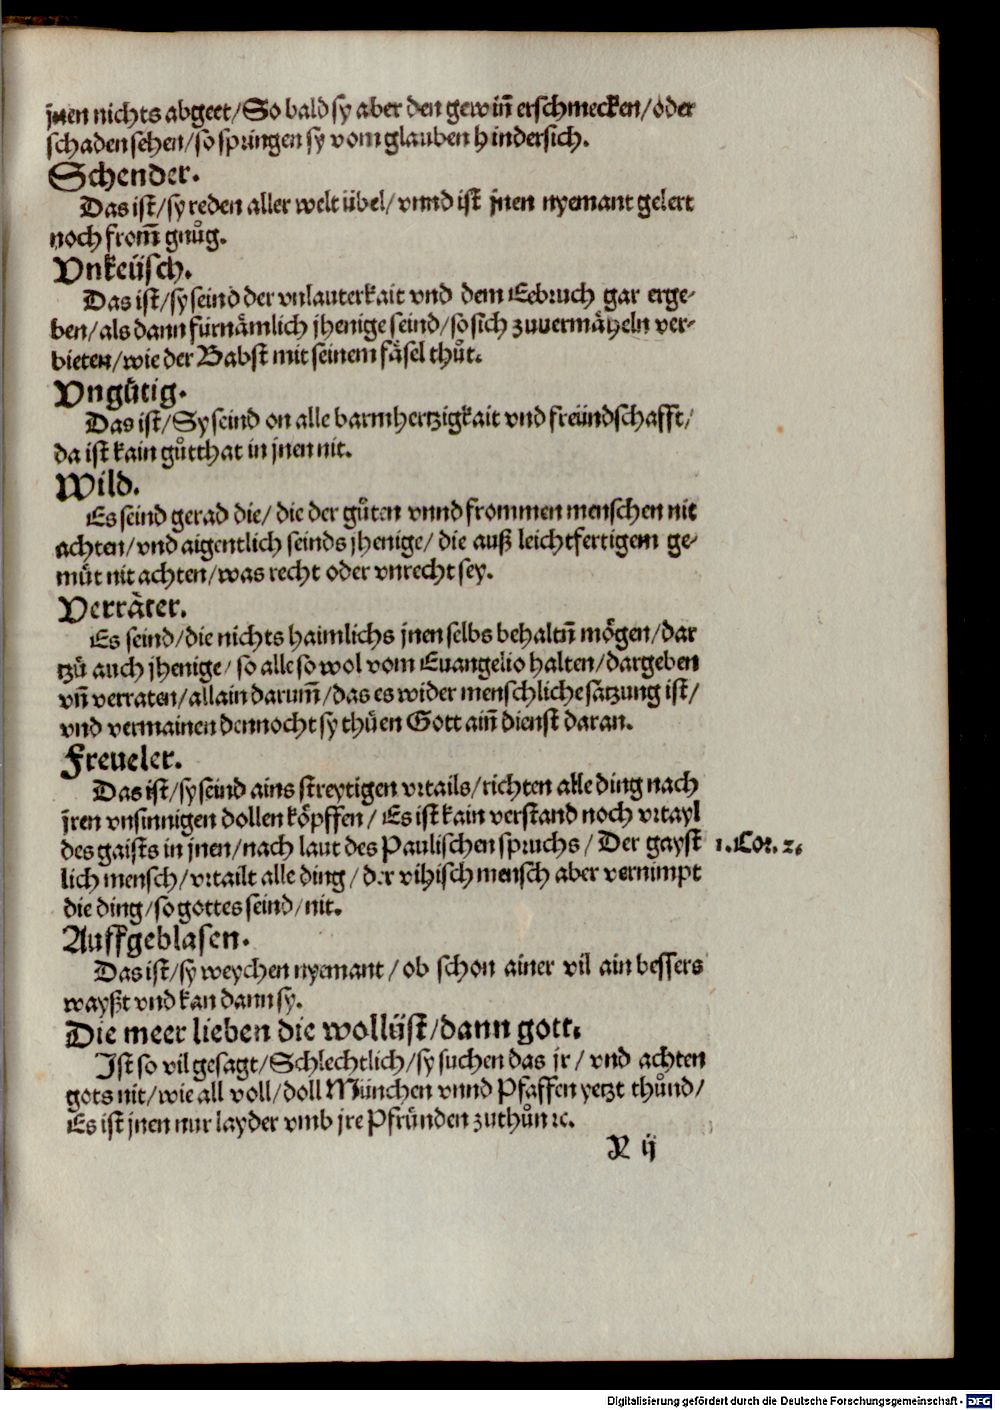 jnen nichts abgeet/ So bald sy aber den gewiñ erschmecken/ oder
schaden sehen/ so springen sy vom glauben hindersich.
Schender.
Das ist/ sy reden aller welt übel/ vnnd ist jnen nyemant gelert
noch from̃ gnůg.
Vnkeüsch.
Das ist/ sy seind der vnlauterkait vnd dem Eebruch gar erge-
ben/ als dann fürnämlich jhenige seind/ so sich zuuermäheln ver-
bieten/ wie der Babst mit seinem fäsel thůt.
Vngütig.
Das ist/ Sy seind on alle barmhertzigkait vnd freündschafft/
da ist kain gůtthat in jnen nit.
Wild.
Es seind gerad die/ die der gůten vnnd frommen menschen nit
achten/ vnd aigentlich seinds jhenige/ die auß leichtfertigem ge-
müt nit achten/ was recht oder vnrecht sey.
Verräter.
Es seind/ die nichts haimlichs jnen selbs behaltñ mögen/ dar
tzů auch jhenige/ so alle so wol vom Euangelio halten/ dargeben
vñ verraten/ allain darum̃/ das es wider menschliche satzung ist/
vnd vermainen dennocht sy thüen Gott aiñ dienst daran.
Freueler.
Das ist/ sy seind ains streytigen vrtails/ richten alle ding nach
jren vnsinnigen dollen köpffen/ Es ist kain verstand noch vrtayl
des gaists in jnen/ nach laut des Paulischen spruchs/ Der gayst
1. Cor. 2.
lich mensch/ vrtailt alle ding/ der vihisch mensch aber vernimpt
die ding/ so gottes seind/ nit.
Auffgeblasen.
Das ist/ sy weychen nyemant/ ob schon ainer vil ain bessers
wayßt vnd kan dann sy.
Die meer lieben die wollüst/ dann gott.
Ist so vil gesagt/ Schlechtlich/ sy suchen das jr/ vnd achten
gots nit/ wie all voll/ doll München vnnd Pfaffen yetzt thůnd/
Es ist jnen nur layder vmb jre Pfründen zuthůn ꝛc.
Y ij
Digitalisierung gefördert durch die Deutsche Forschungsgemeinschaft - DFG